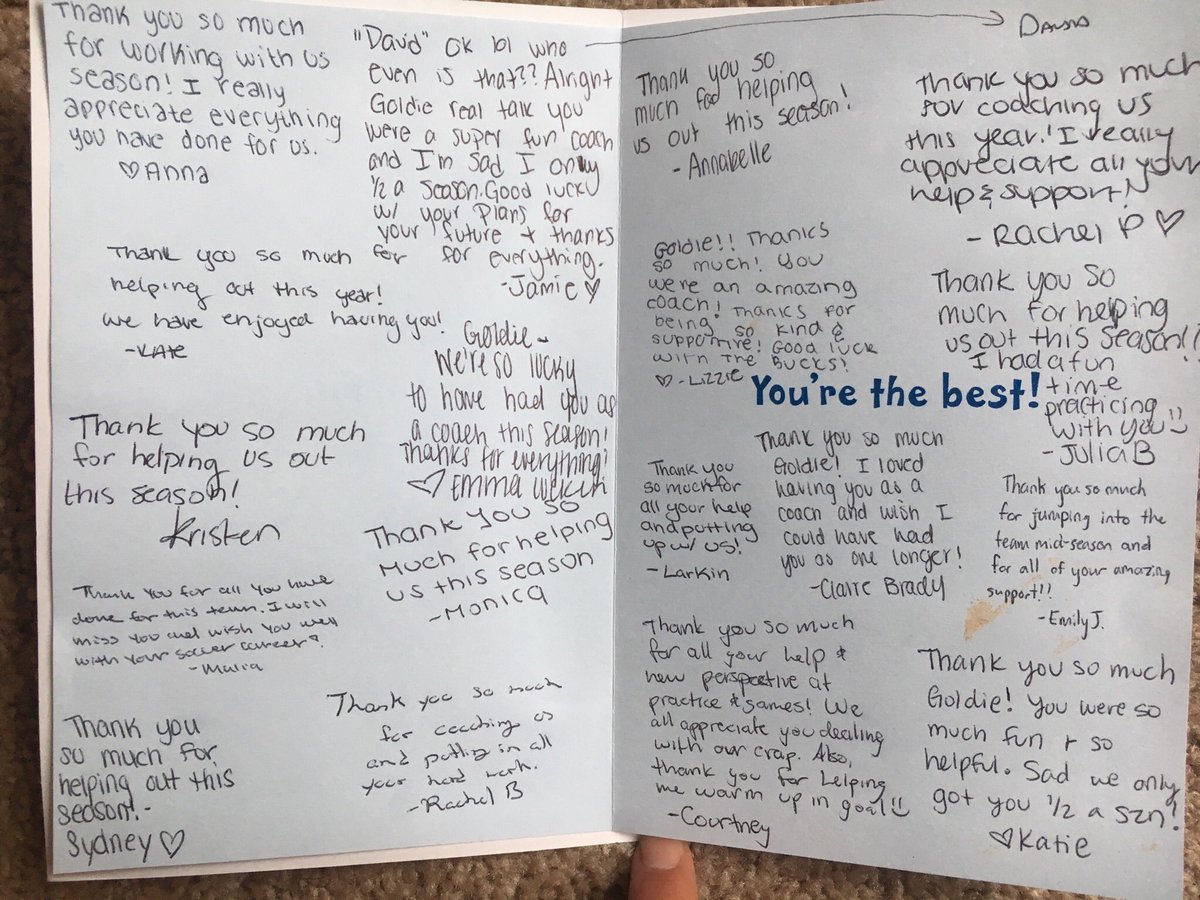 Thank you so much
for working with us
season! I really
appreciate everything
you have done for us.
♡Anna
"David" ok lol who
even is that?? Alright
Goldie real talk you
were a super fun coach
and I'm sad I only
1/2 a season. Good luck
w/ your plans for
your future + thanks
for everything.
-Jamie ♡
Thank you so much for
helping out this year!
we have enjoyed having you!
-KATE
Goldie-
We're so lucky
to have had you as
a coach this season!
Thanks for everything!
♡ Emma
Thank you so much
for helping us out
this season!
Kristen
Thank you so
much for helping
us this season
-Monica
Thank you for all you have
done for this team. I will
miss you and wish you well
with your soccer career!
-Malia
Thank you so much
for coaching us
and putting in all
your hard work.
-Rachel B
Thank you
so much for
helping out this
season!-
Sydney ♡
Thank you so
much for helping
us out this season!
-Annabelle
Thank you so much
for coaching us
this year! I really
appreciate all your
help & support!
-Rachel P ♡
Goldie!! Thanks
so much! You
were an amazing
coach! Thanks for
being so kind &
supportive! Good luck
with the Bucks!
♡-Lizzie
Thank you so
much for helping
us out this season!!
I had a fun
time
practicing
with you :)
-Julia B
You're the best!
Thank you
so much for
all your help
and putting
up w/ us!
-Larkin
Thank you so much
Goldie! I loved
having you as a
coach and wish I
could have had
you as one longer!
-Claire Brady
Thank you so much
for jumping into the
team mid-season and
for all of your amazing
support!!
-Emily J.
Thank you so much
for all your help &
new perspective at
practice & games! We
all appreciate you dealing
with our crap. Also,
thank you for helping
me warm up in goal :)
-Courtney
Thank you so much
Goldie! You were so
much fun + so
helpful. Sad we only
got you 1/2 a szn!
♡Katie